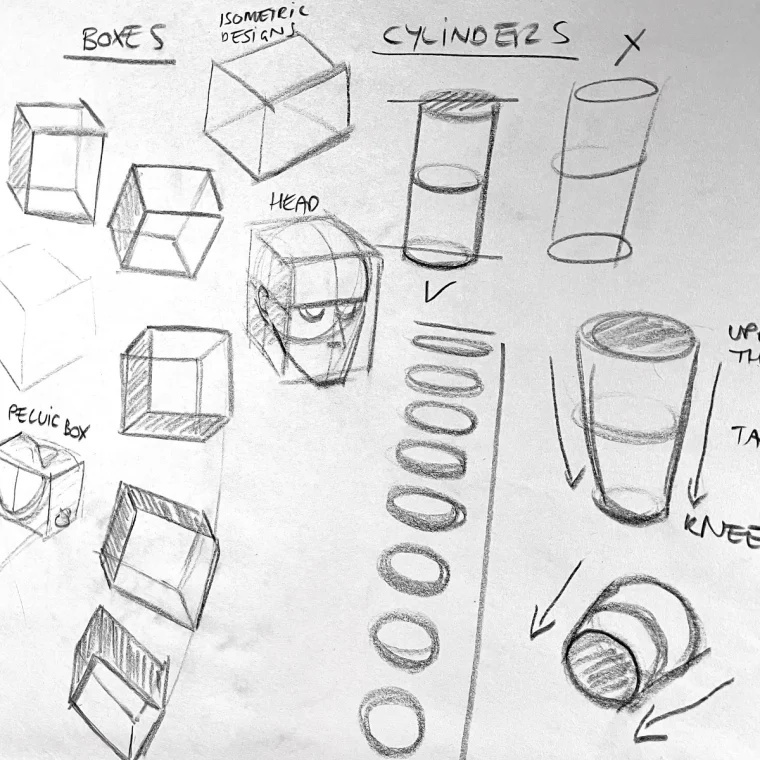 BOXES
ISOMETRIC
DESIGNS
CYLINDERS
X
HEAD
PELVIC BOX
UP
TH
TA
KNEE